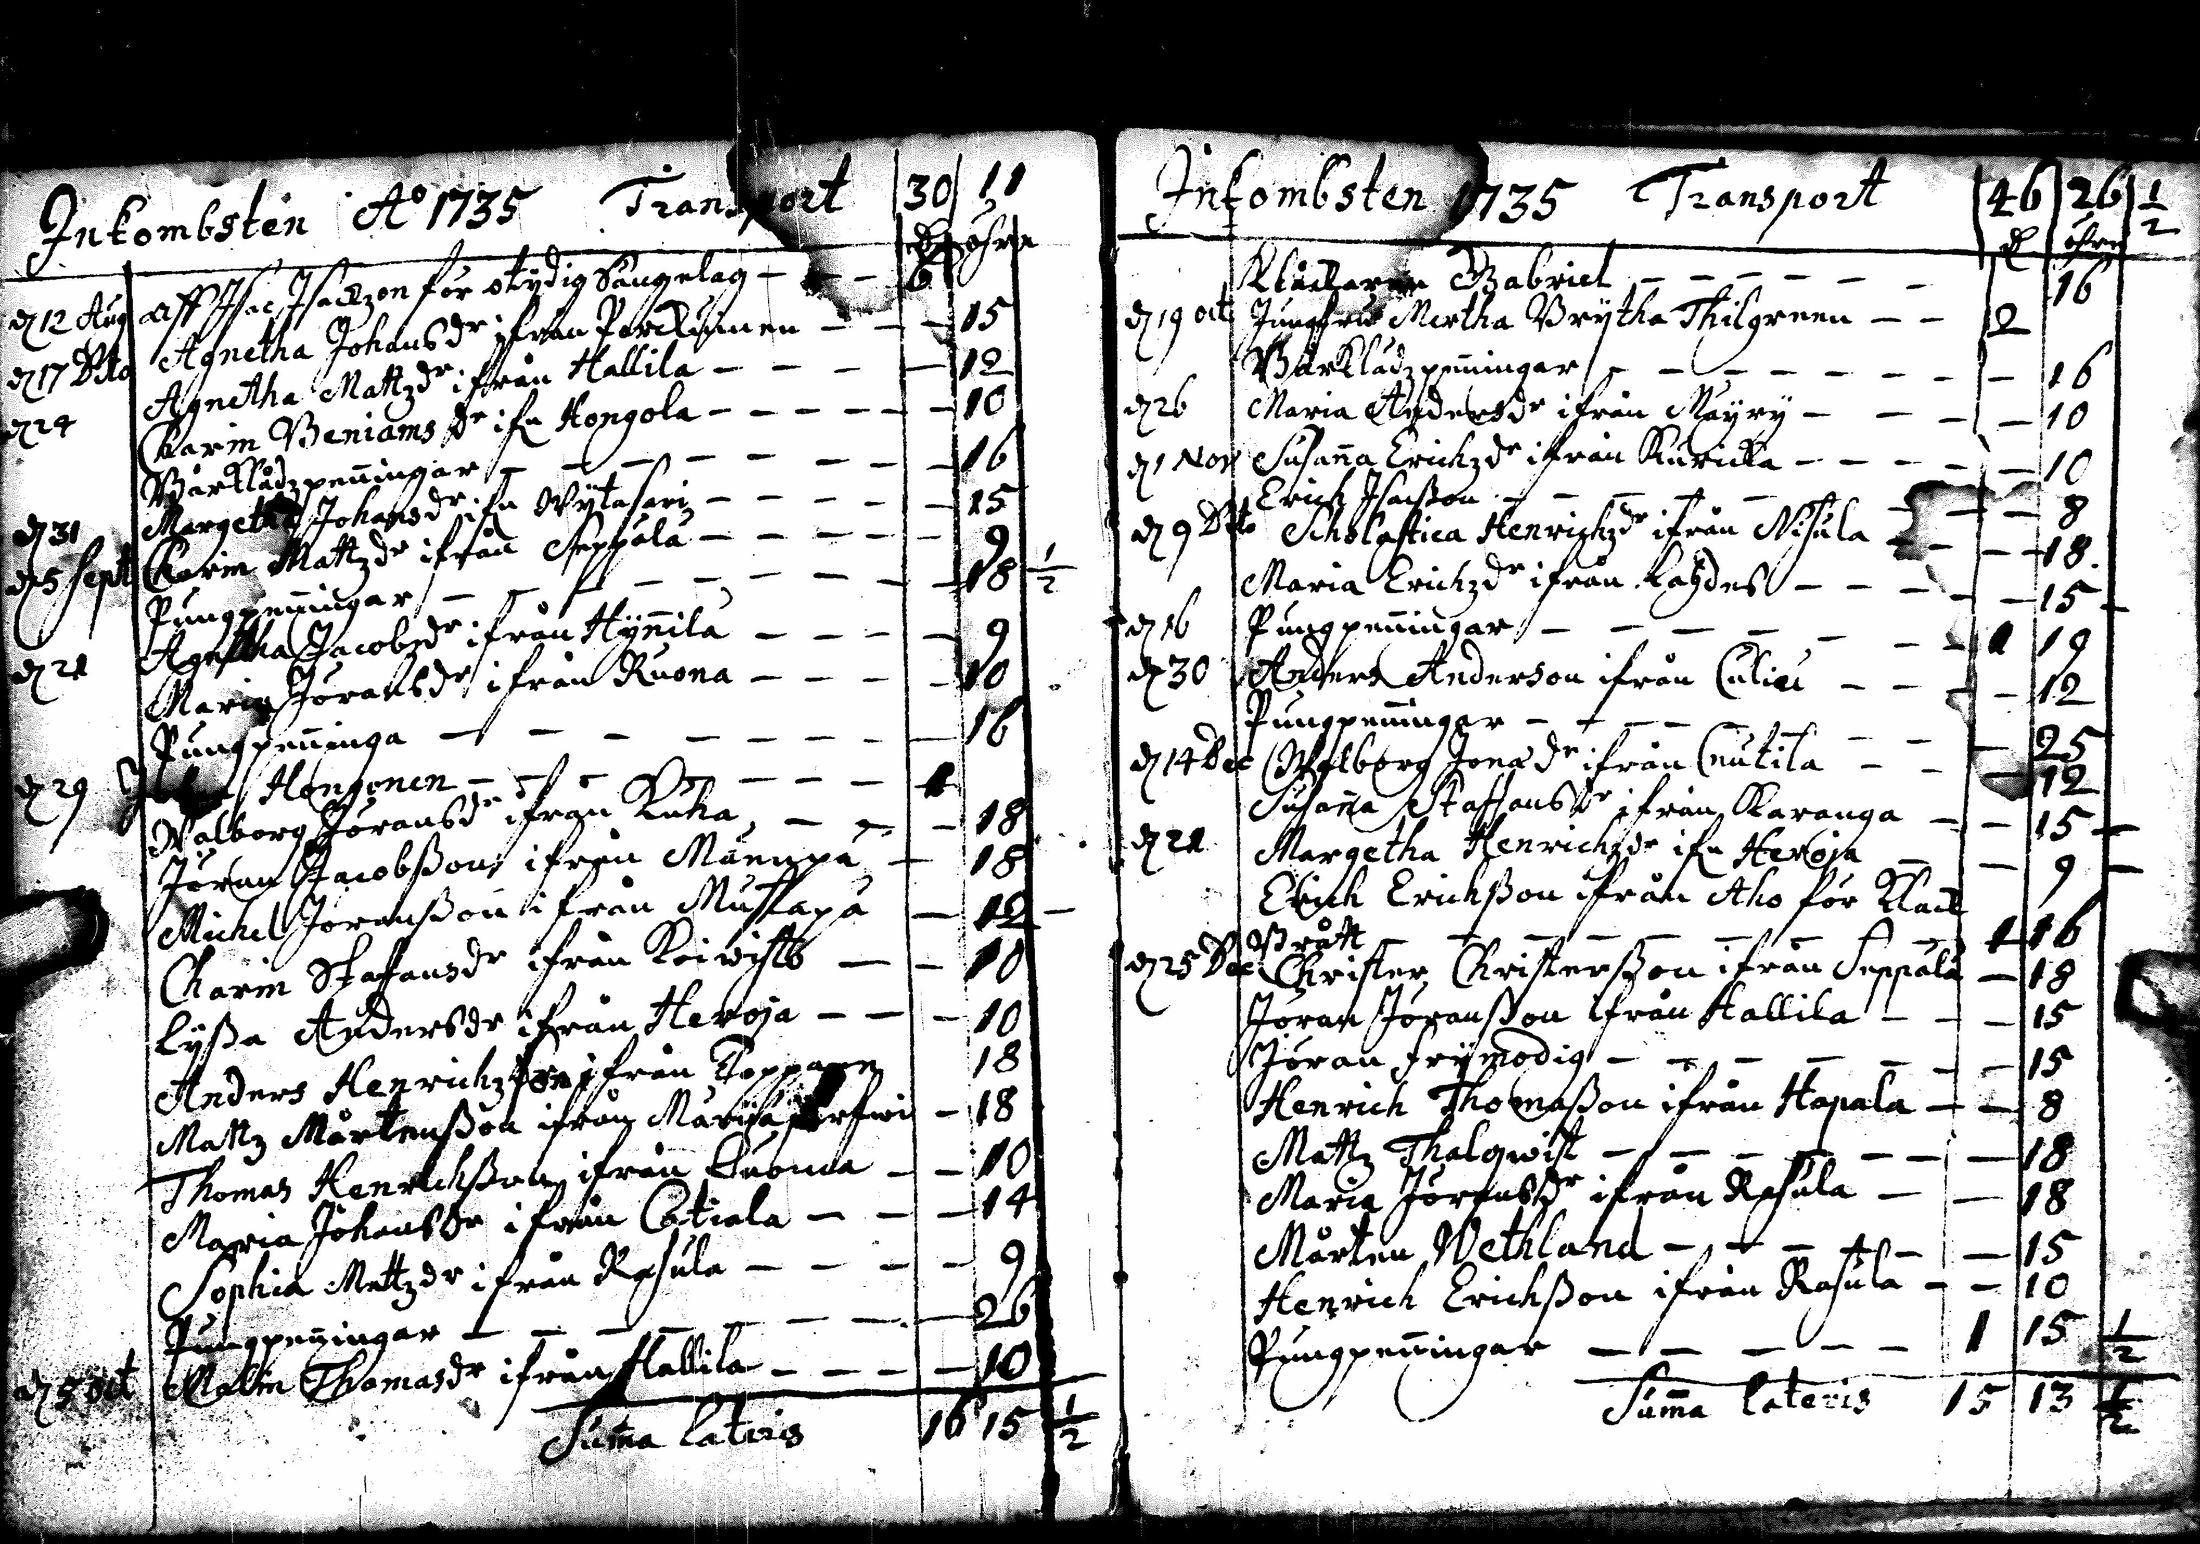 Inkombsten Ao 1735 Transport 30 11
dr öhre
d 12 Aug aff Isac Isackzon för otydig Sängelag - - - 6
d 17 Dito Agnetha Johansdr ifrån Perckiümen - - - 15
Agnetha Mattzdr ifrån Hallila - - - - 12
d 24 Carin Beniamsdr ifn Hongola - - - - - - 10
Bårklädzpenningar - - - - - - - 16
d 31 Margetha Johansdr ifn Wÿtasari - - - - - 15
d 5 Sept Carin Mattzdr ifrån Seppälä - - - - - 9
Pungpenningar - - - - - - - 18 1/2
d 21 Agnetha Jacobzdr ifrån Hÿnnilä - - - - 9
Maria Jöransdr ifrån Ruona - - - - 10
Pungpenninga - - - - - - - - 16
d 29 Hongonen - - - - - - - 1
Walborg Jöransdr ifrån Kuha - - - 18
Jöran Jacobßon ifrån Mäenpä - 18
Michel Joranßon ifrån Mustapä - 12 -
Charin Staffansdr ifrån Koiwisto - - 10
Lÿßa Andersdr ifrån Heroja - - - 10
Anders Henrichzson ifrån Topparen 18
Mattz Mårtenßon ifrån - 18
Thomas Henrichßon ifrån Luoma - - 10
Maria Johansdr ifrån Cotiala - - - 14
Sophia Mattzdr ifrån Rasula - - - - 9
Pungpenningar - - - - - - - - 26
d 5 oct Malin Thomasdr ifrån Hallila - - - - 10
Summa Lateris 16 15 1/2
Inkombsten 1735 Transport 46 26 1/2
dr öhre
Klåckaren Gabriel - - - - - - 16
d 19 oct Jungfru Mertha Brÿtha Thilgreen - - 2
Bårklädzpenningar - - - - - - - - 16
d 26 Maria Andersdr ifrån Mäÿrÿ - - - - 10
d 1 Nov Susanna Erichzdr ifrån Kuricka - - - - - 10
Erich Isacßon - - - - - - - - 8
d 9 Dito Scholastica Henrichzdr ifrån Nisula - - - 18.
Maria Erichzdr ifrån Laÿdes - - - - - 15 -
d 16 Pungpenningar - - - - - - - 1 19
d 30 Anders Anderson ifrån Culiu - - - - 12
Pungpenningar - - - - - - - 25
d 14 Dec Walborg Jonædr ifrån Cnutila - - - 12
Susanna Staffansdr ifrån Karanga - - 15 -
d 21 Margetha Henrichzdr ifn Heroja - - 9 -
Erich Erichßon ifrån Aho för Klack
Brått - - - - - - - 1 16
d 25 Dec Christer Christerßon ifrån Seppälä - 18
Jöran Jöranßon ifrån Hallila - - - 15
Jöran frÿmodig - - - - - - - 15
Henrich Thomaßon ifrån Hapala - - 8
Mattz Thalqwist - - - - - - - 18
Maria Jöransdr ifrån Rasula - - 18
Mårten Wethland - - - - - - 15
Henrich Erichßon ifrån Rasula - - 10
Pungpenningar - - - - - 1 15 1/2
Summa Lateris 15 13 1/2